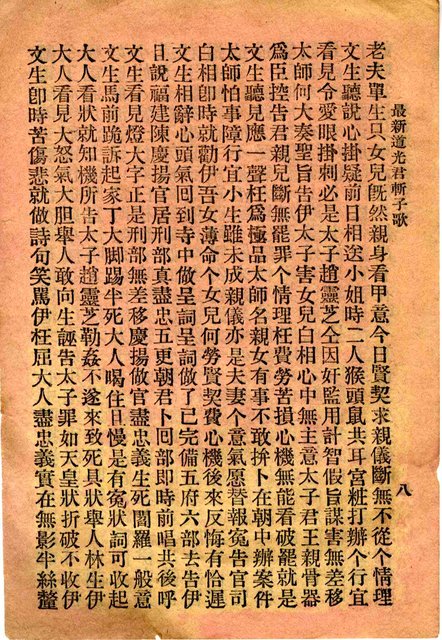 最新道光君斬子歌
八
老夫單生只女兒既然親身看甲意今日賢契求親儀斷無不從个情理
文生聽說心掛疑前日相送小姐時二人猴頭鼠共耳宮粧打辦个行宜
看見令愛眼掛刺必是太子趙靈芝仝因奸監用計智假旨謀害無差移
太師何大奏聖旨告伊太子害女兒白相心中無主意太子君王親骨器
爲臣控告君親兒斷無罷罪个情理枉費勞苦損心機無能看破罷就是
文生聽見應一聲枉爲極品太師名親女有事不敢拚卜在朝中辦案件
太師怕事障行宜小生雖未成親儀亦是夫妻个意氣愿替報冤告官司
白相卽時就勸伊吾女薄命个女兒何勞賢契費心機後來反悔有恰遲
文生相辭心頭氣回到寺中做呈詞呈詞做了已完備五府六部去告伊
且說福建陳慶揚官居刑部真盡忠五更朝君卜回部卽時前唱共後呼
文生看見燈大字正是刑部無差移慶揚做官盡忠義生死閻羅一般意
文生馬前跪訴起家丁大脚踢半死大人喝住且慢是有寃狀詞可收起
大人看狀就知機所告太子趙靈芝勒姦不遂來致死具狀舉人林生伊
大人看見大怒氣大胆舉人敢向生誣告太子罪如天皇狀折破不收伊
文生卽時苦傷悲就做詩句笑罵伊枉屈大人盡忠義實在無影半絲釐